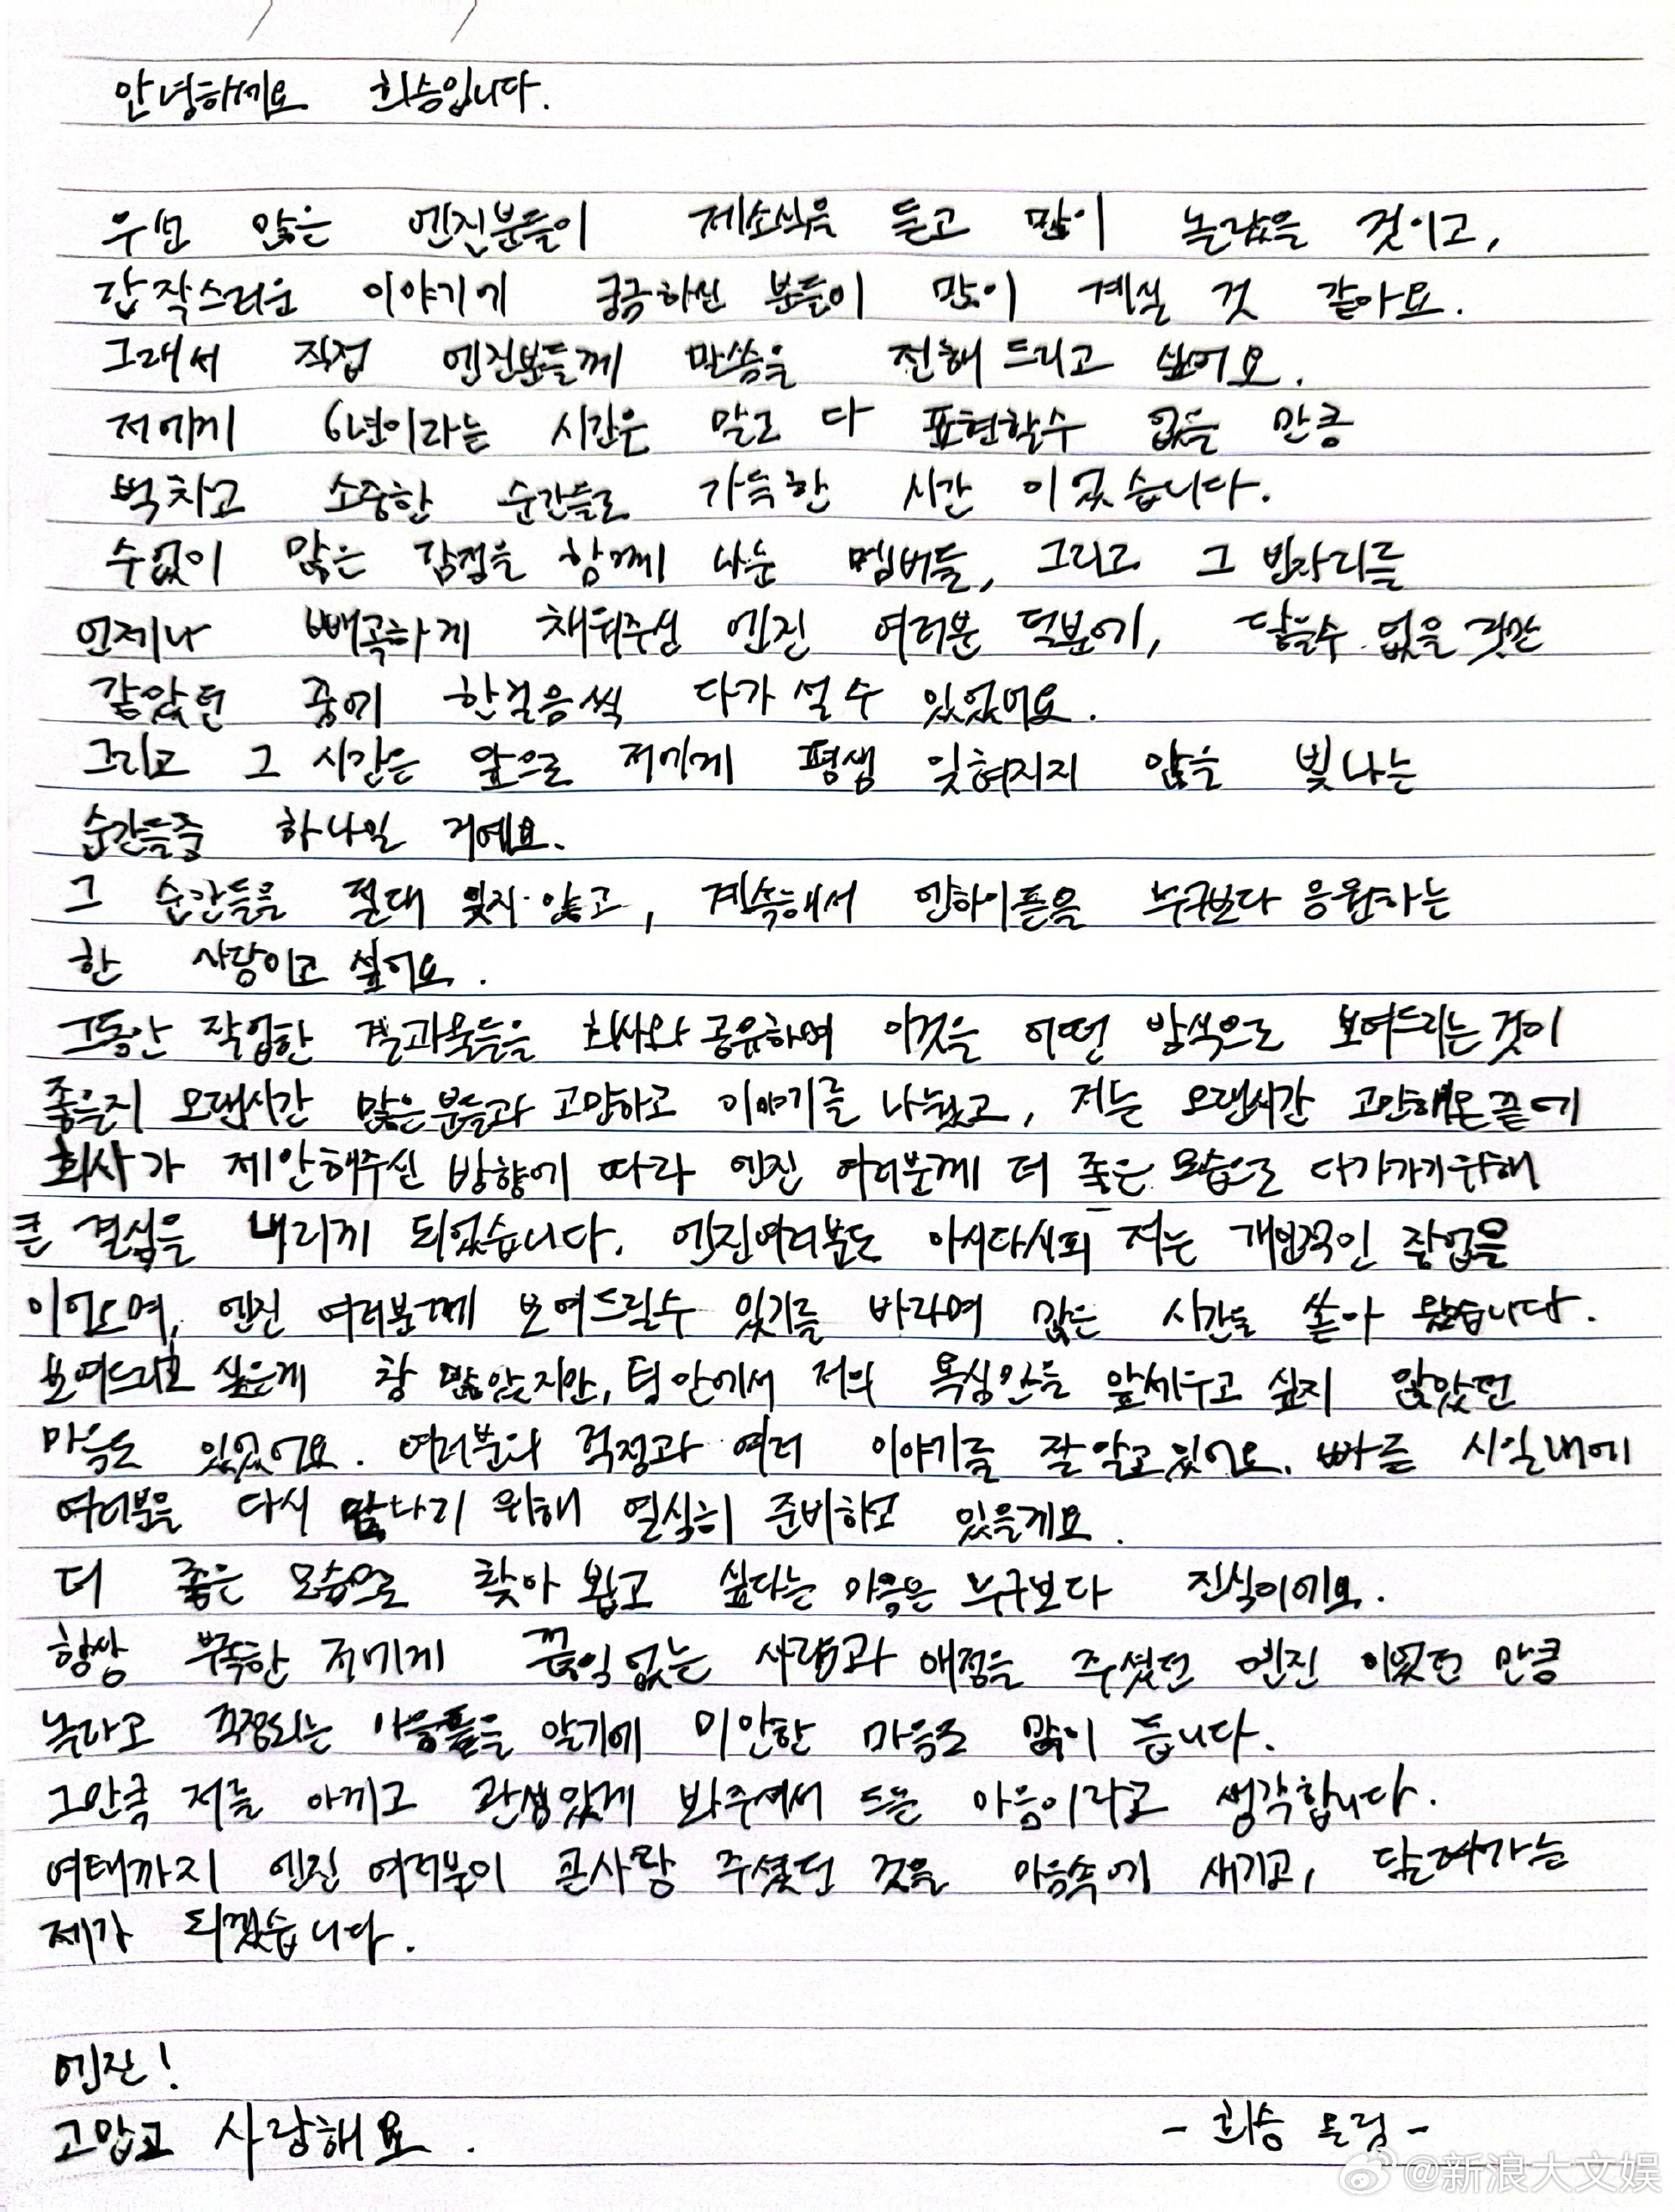 안녕하세요 희승입니다.
우선 많은 엔진분들이 제소식을 듣고 많이 놀랐을 것이고,
갑작스러운 이야기에 궁금하신 분들이 많이 계실 것 같아요.
그래서 직접 엔진분들께 말씀을 전해드리고 싶어요.
저에게 6년이라는 시간은 말로 다 표현할수 없을 만큼
벅차고 소중한 순간들로 가득한 시간 이었습니다.
수없이 많은 감정을 함께 나눈 멤버들, 그리고 그 빈자리를
언제나 빼곡하게 채워주신 엔진 여러분 덕분에, 닿을수 없을 것만
같았던 꿈에 한걸음씩 다가 설 수 있었어요.
그리고 그 시간은 앞으로 저에게 평생 잊혀지지 않을 빛나는
순간들중 하나일 거에요.
그 순간들을 절대 잊지 않고, 계속해서 엔하이픈을 누구보다 응원하는
한 사람이고 싶어요.
그동안 작업한 결과물들을 회사와 공유하며 이것을 어떤 방식으로 보여드리는 것이
좋을지 오랜시간 많은분들과 고민하고 이야기를 나눴고, 저는 오랜시간 고민해온끝에
회사가 제안해주신 방향에 따라 엔진 여러분께 더 좋은 모습으로 다가가기위해
큰 결심을 내리게 되었습니다. 엔진여러분도 아시다시피 저는 개인적인 작업을
이어오며, 엔진 여러분께 보여드릴수 있기를 바라며 많은 시간을 쏟아 왔습니다.
보여드리고 싶은게 참 많았지만, 팀 안에서 저의 욕심만을 앞세우고 싶지 않았던
마음도 있었어요. 여러분의 걱정과 여러 이야기를 잘 알고있어요. 빠른 시일내에
여러분을 다시 만나기 위해 열심히 준비하고 있을게요.
더 좋은 모습으로 찾아 뵙고 싶다는 마음은 누구보다 진심이에요.
항상 부족한 저에게 끊임없는 사랑과 애정을 주셨던 엔진 이었던 만큼
놀라고 걱정되는 마음들을 알기에 미안한 마음도 많이 듭니다.
그만큼 저를 아끼고 관심있게 봐주셔서 드는 마음이라고 생각합니다.
여태까지 엔진 여러분이 큰사랑 주셨던 것을 마음속에 새기고, 달려가는
제가 되겠습니다.
엔진!
고맙고 사랑해요.
- 희승 올림 -
@新浪大文娱